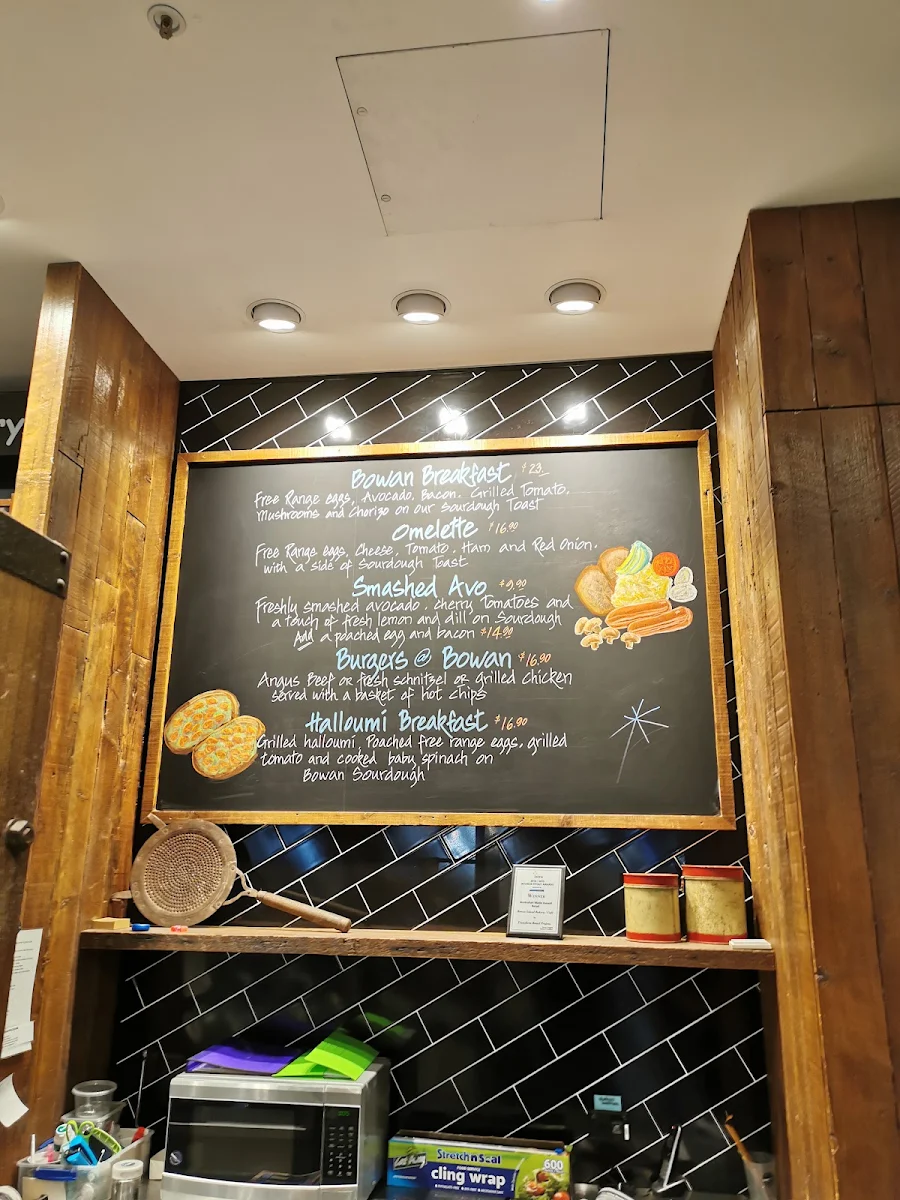 ry
Bowan Breakfast $23.
Free Range eggs, Avocado, Bacon, Grilled Tomato,
Mushrooms and Chorizo on our Sourdough Toast
Omelette $16.90
Free Range eggs, Cheese, Tomato, Ham and Red Onion.
with a side of Sourdough Toast
Smashed Avo $9.90
Freshly smashed avocado, cherry Tomatoes and
a touch of fresh lemon and dill on Sourdough
Add a poached egg and bacon $14.90
Burgers @ Bowan $16.90
Angus Beef or fresh schnitzel or Grilled chicken
served with a basket of hot chips
Halloumi Breakfast $16.90
Grilled halloumi, Poached free range eggs, grilled
tomato and cooked baby spinach on
Bowan Sourdough
WINNER
Stretch n Seal
FOOD SERVICE
cling wrap
600